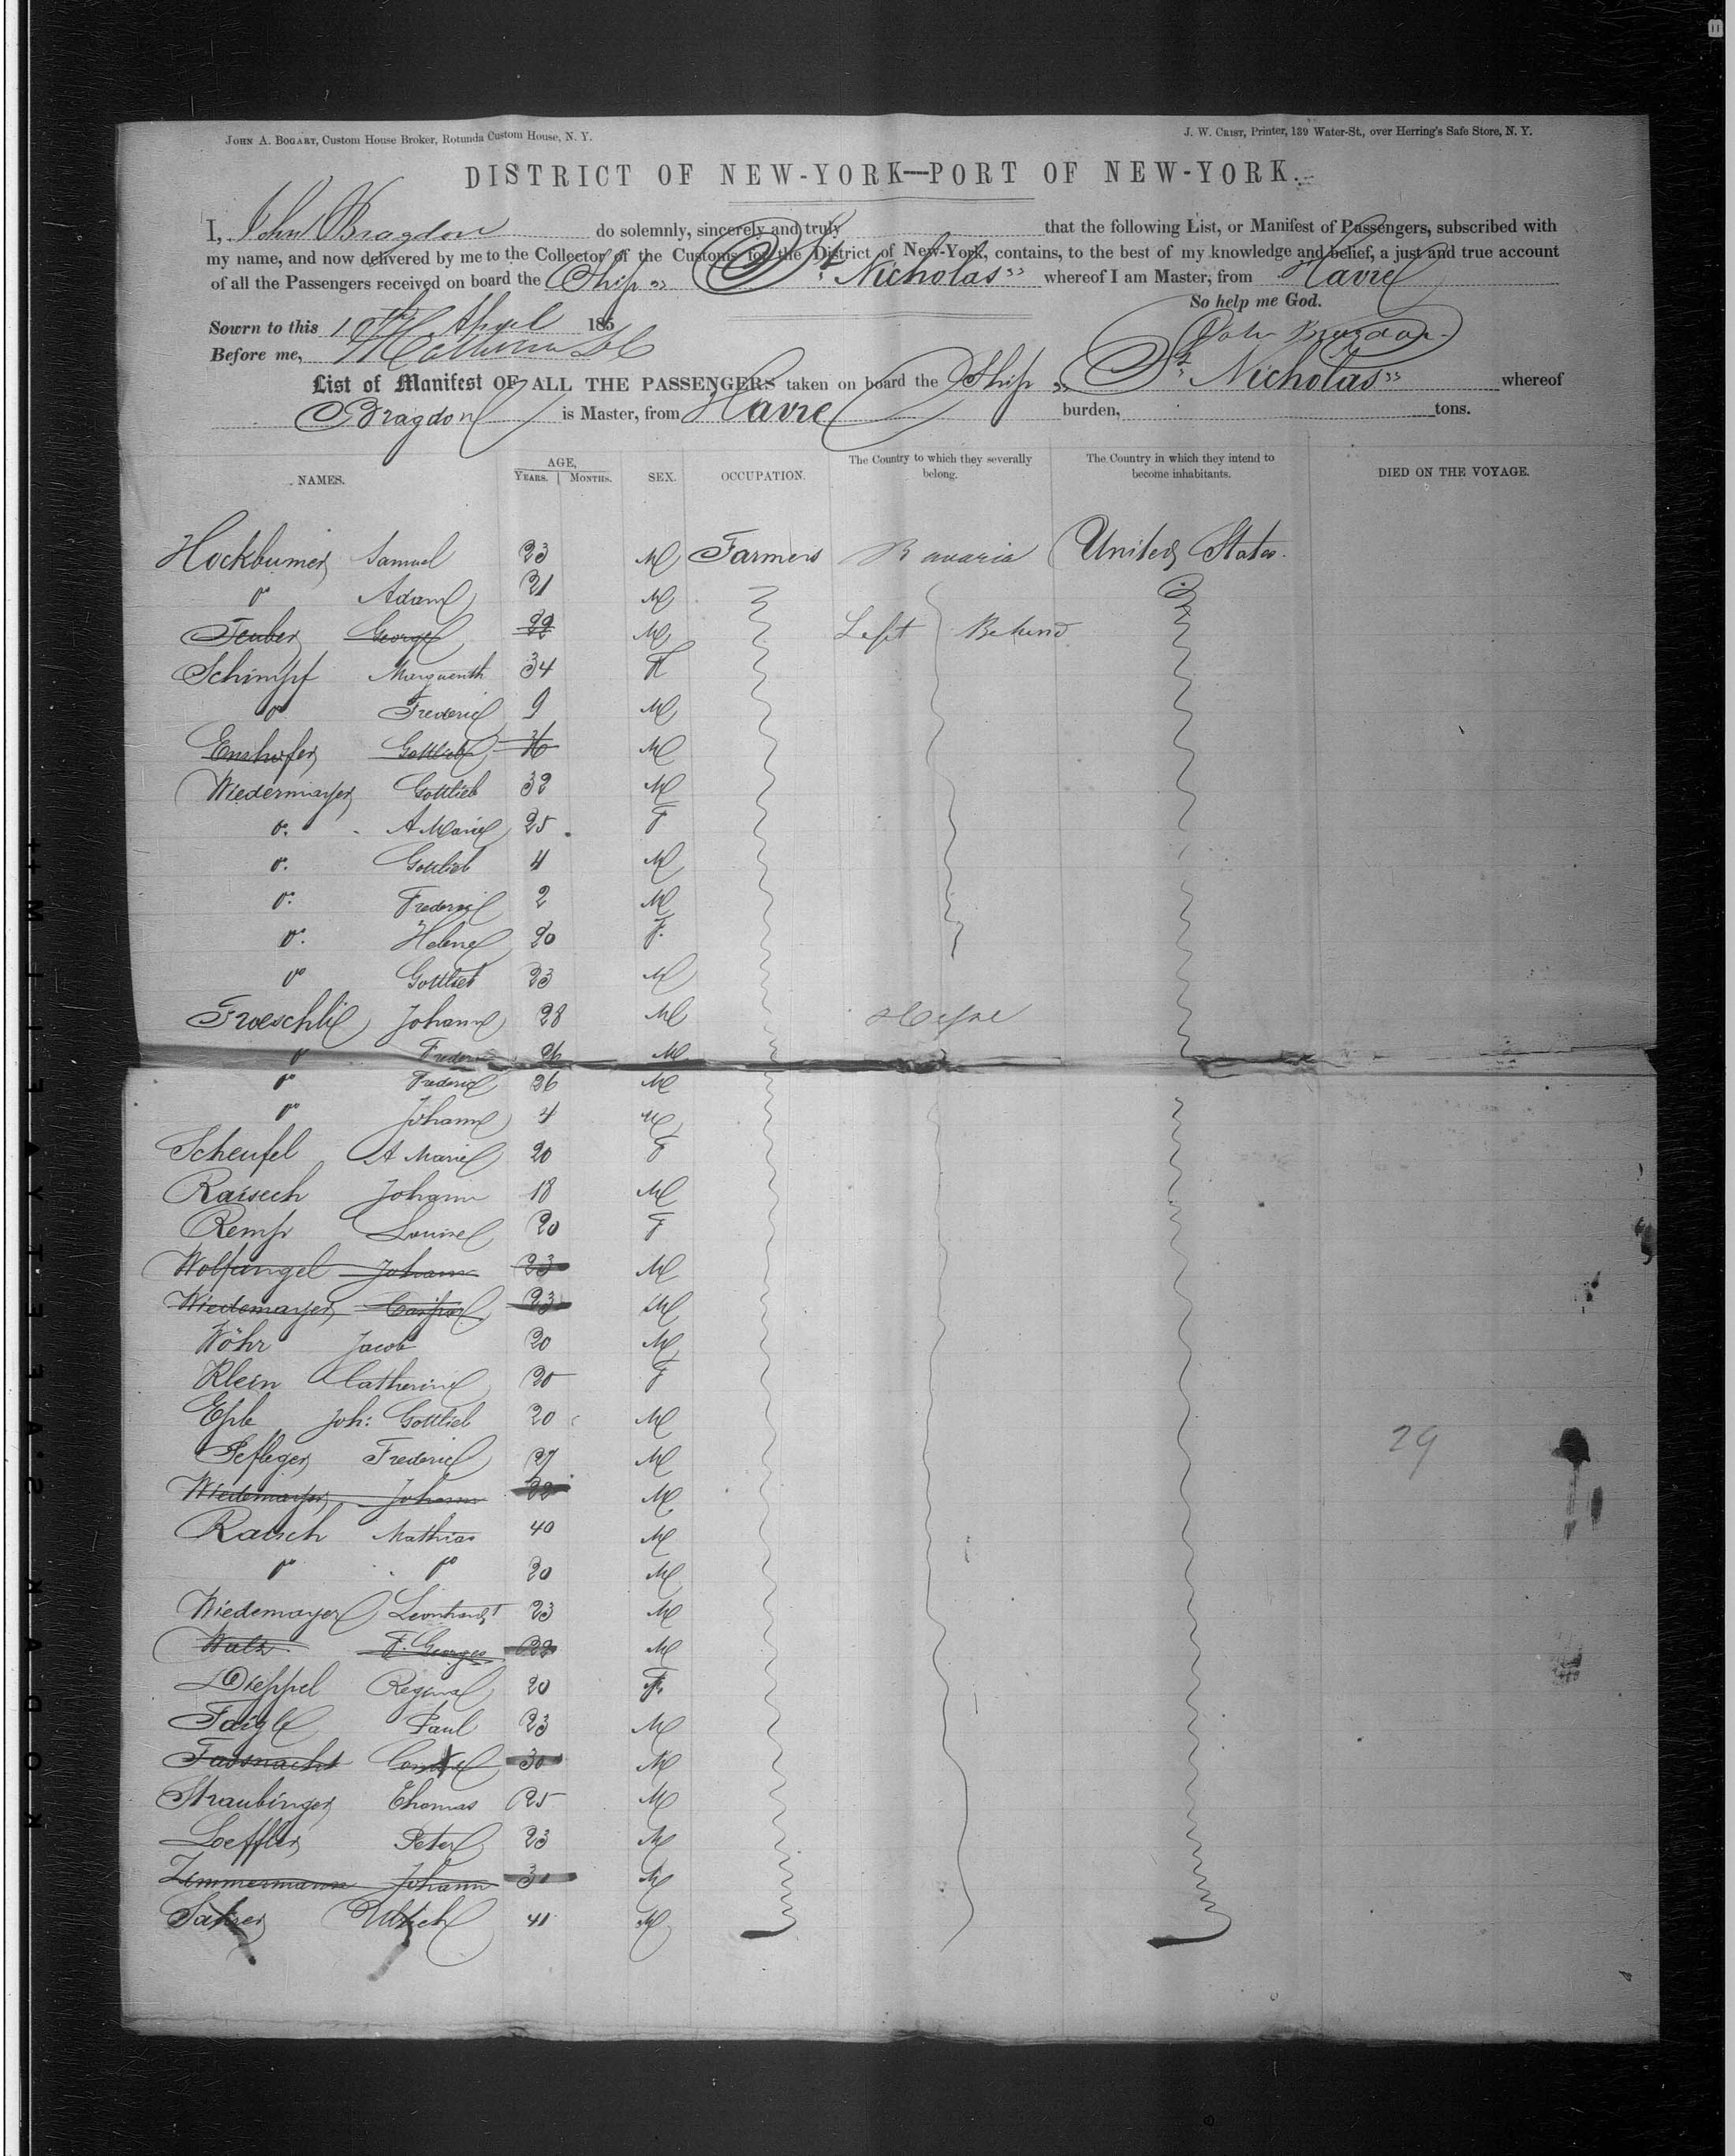 JOHN A. BOGART, Custom House Broker, Rotunda Custom House, N. Y.
J. W. CRIST, Printer, 139 Water-St., over Herring's Safe Store, N. Y.
DISTRICT OF NEW-YORK—PORT OF NEW-YORK.
I, John Bragdon do solemnly, sincerely and truly that the following List, or Manifest of Passengers, subscribed with
my name, and now delivered by me to the Collector of the Customs for the District of New-York, contains, to the best of my knowledge and belief, a just and true account
of all the Passengers received on board the Ship " St Nicholas" whereof I am Master, from Havre
So help me God.
Sowrn to this 10th April 185
John Bragdon
Before me,
List of Manifest OF ALL THE PASSENGERS taken on board the Ship " St Nicholas" whereof
Bragdon is Master, from Havre burden, tons.
NAMES. AGE, YEARS. MONTHS. SEX. OCCUPATION. The Country to which they severally belong. The Country in which they intend to become inhabitants. DIED ON THE VOYAGE.
Hockbumer Samuel 23 M Farmers Bavaria United States.
" Adam 21 M
Teuber George 22 M Left Behind
Schimpf Marguerith 34 F
" Frederic 9 M
Enshofer Gottlieb 36 M
Wiedermayer Gottlieb 32 M
" A Marie 25 F
" Gottlieb 4 M
" Frederic 2 M
" Helene 20 F.
" Gottlieb 23 M
Froeschle Johann 28 M Hesse
" Frederic 26 M
" Frederic 26 M
" Johann 4 M
Scheufel A Marie 20 F
Raisech Johann 18 M
Remp Louise 20 F
Wolfangel Johann 23 M
Wiedemayer Caspar 23 M
Wöhr Jacob 20 M
Klein Catherine 20 F
Eple Joh: Gottlieb 20 M
Pefleger Frederic 27 M
29
Wiedemayer Johann 22 M
Raisch Mathias 40 M
" " 20 M
Wiedemayer Leonhardt 23 M
Walz F. Georges 22 M
Dieppel Regina 20 F.
Faigle Paul 23 M
Fassnacht 30 M
Straubinger Thomas 25 M
Loeffler Peter 23 M
Zimmermann Johann 31 M
Ulrich 41 M